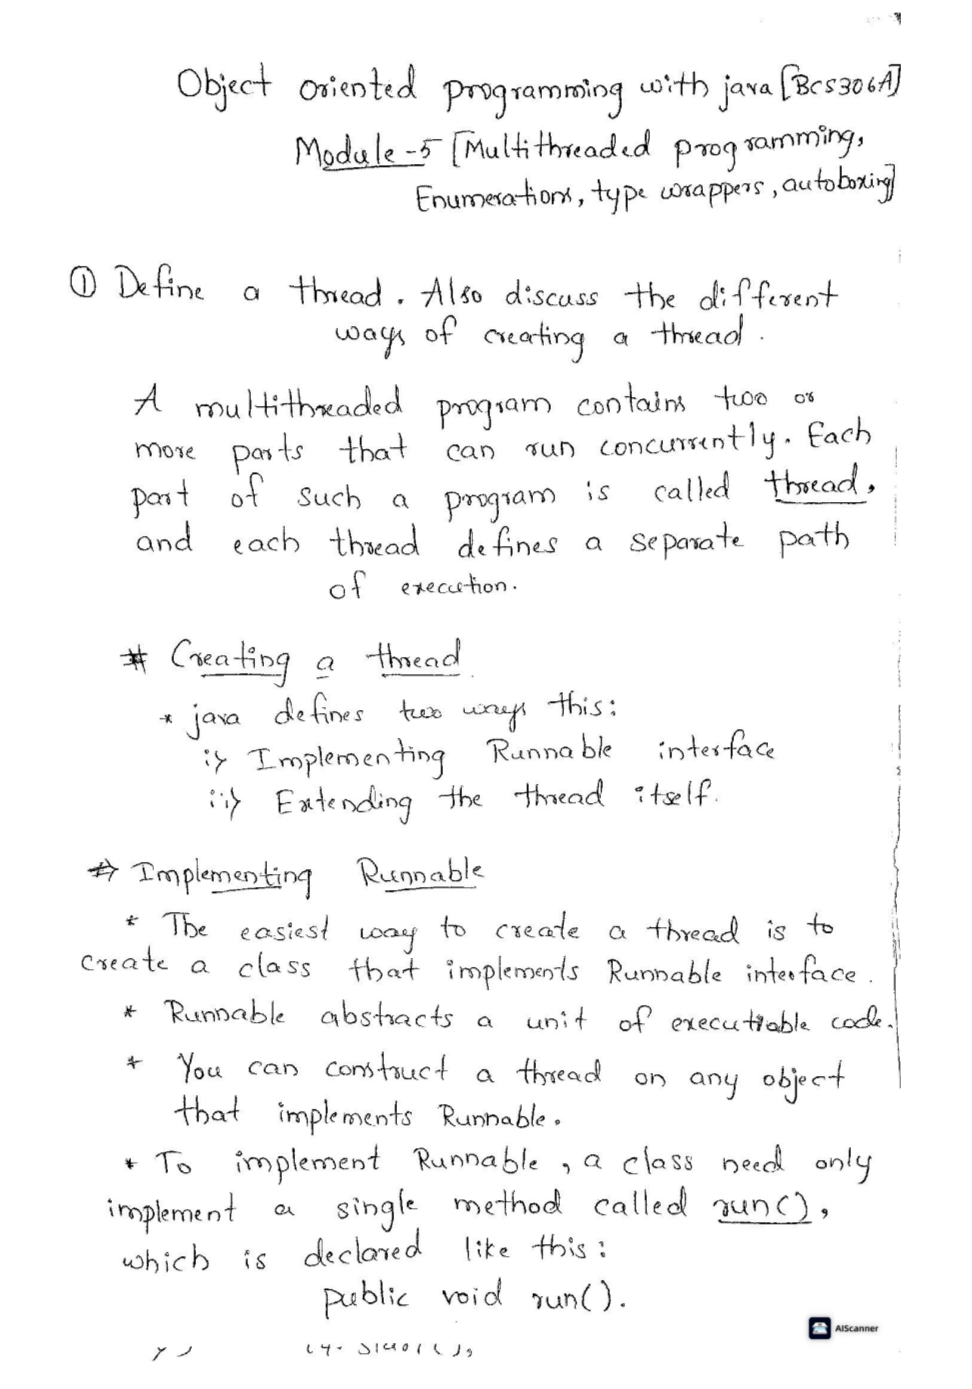 Object oriented programming with java [BCS306A]
Module-5 [Multithreaded programming,
Enumerations, type wrappers, autoboxing]
① Define a thread. Also discuss the different
ways of creating a thread.
A multithreaded program contains two or
more parts that can run concurrently. Each
part of such a program is called thread,
and each thread defines a separate path
of execution.
# Creating a thread
* java defines two ways this:
i> Implementing Runnable interface
ii> Extending the thread itself.
=> Implementing Runnable
* The easiest way to create a thread is to
create a class that implements Runnable interface.
* Runnable abstracts a unit of executable code.
* You can construct a thread on any object
that implements Runnable.
* To implement Runnable, a class need only
implement a single method called run(),
which is declared like this:
public void run().
AIScanner